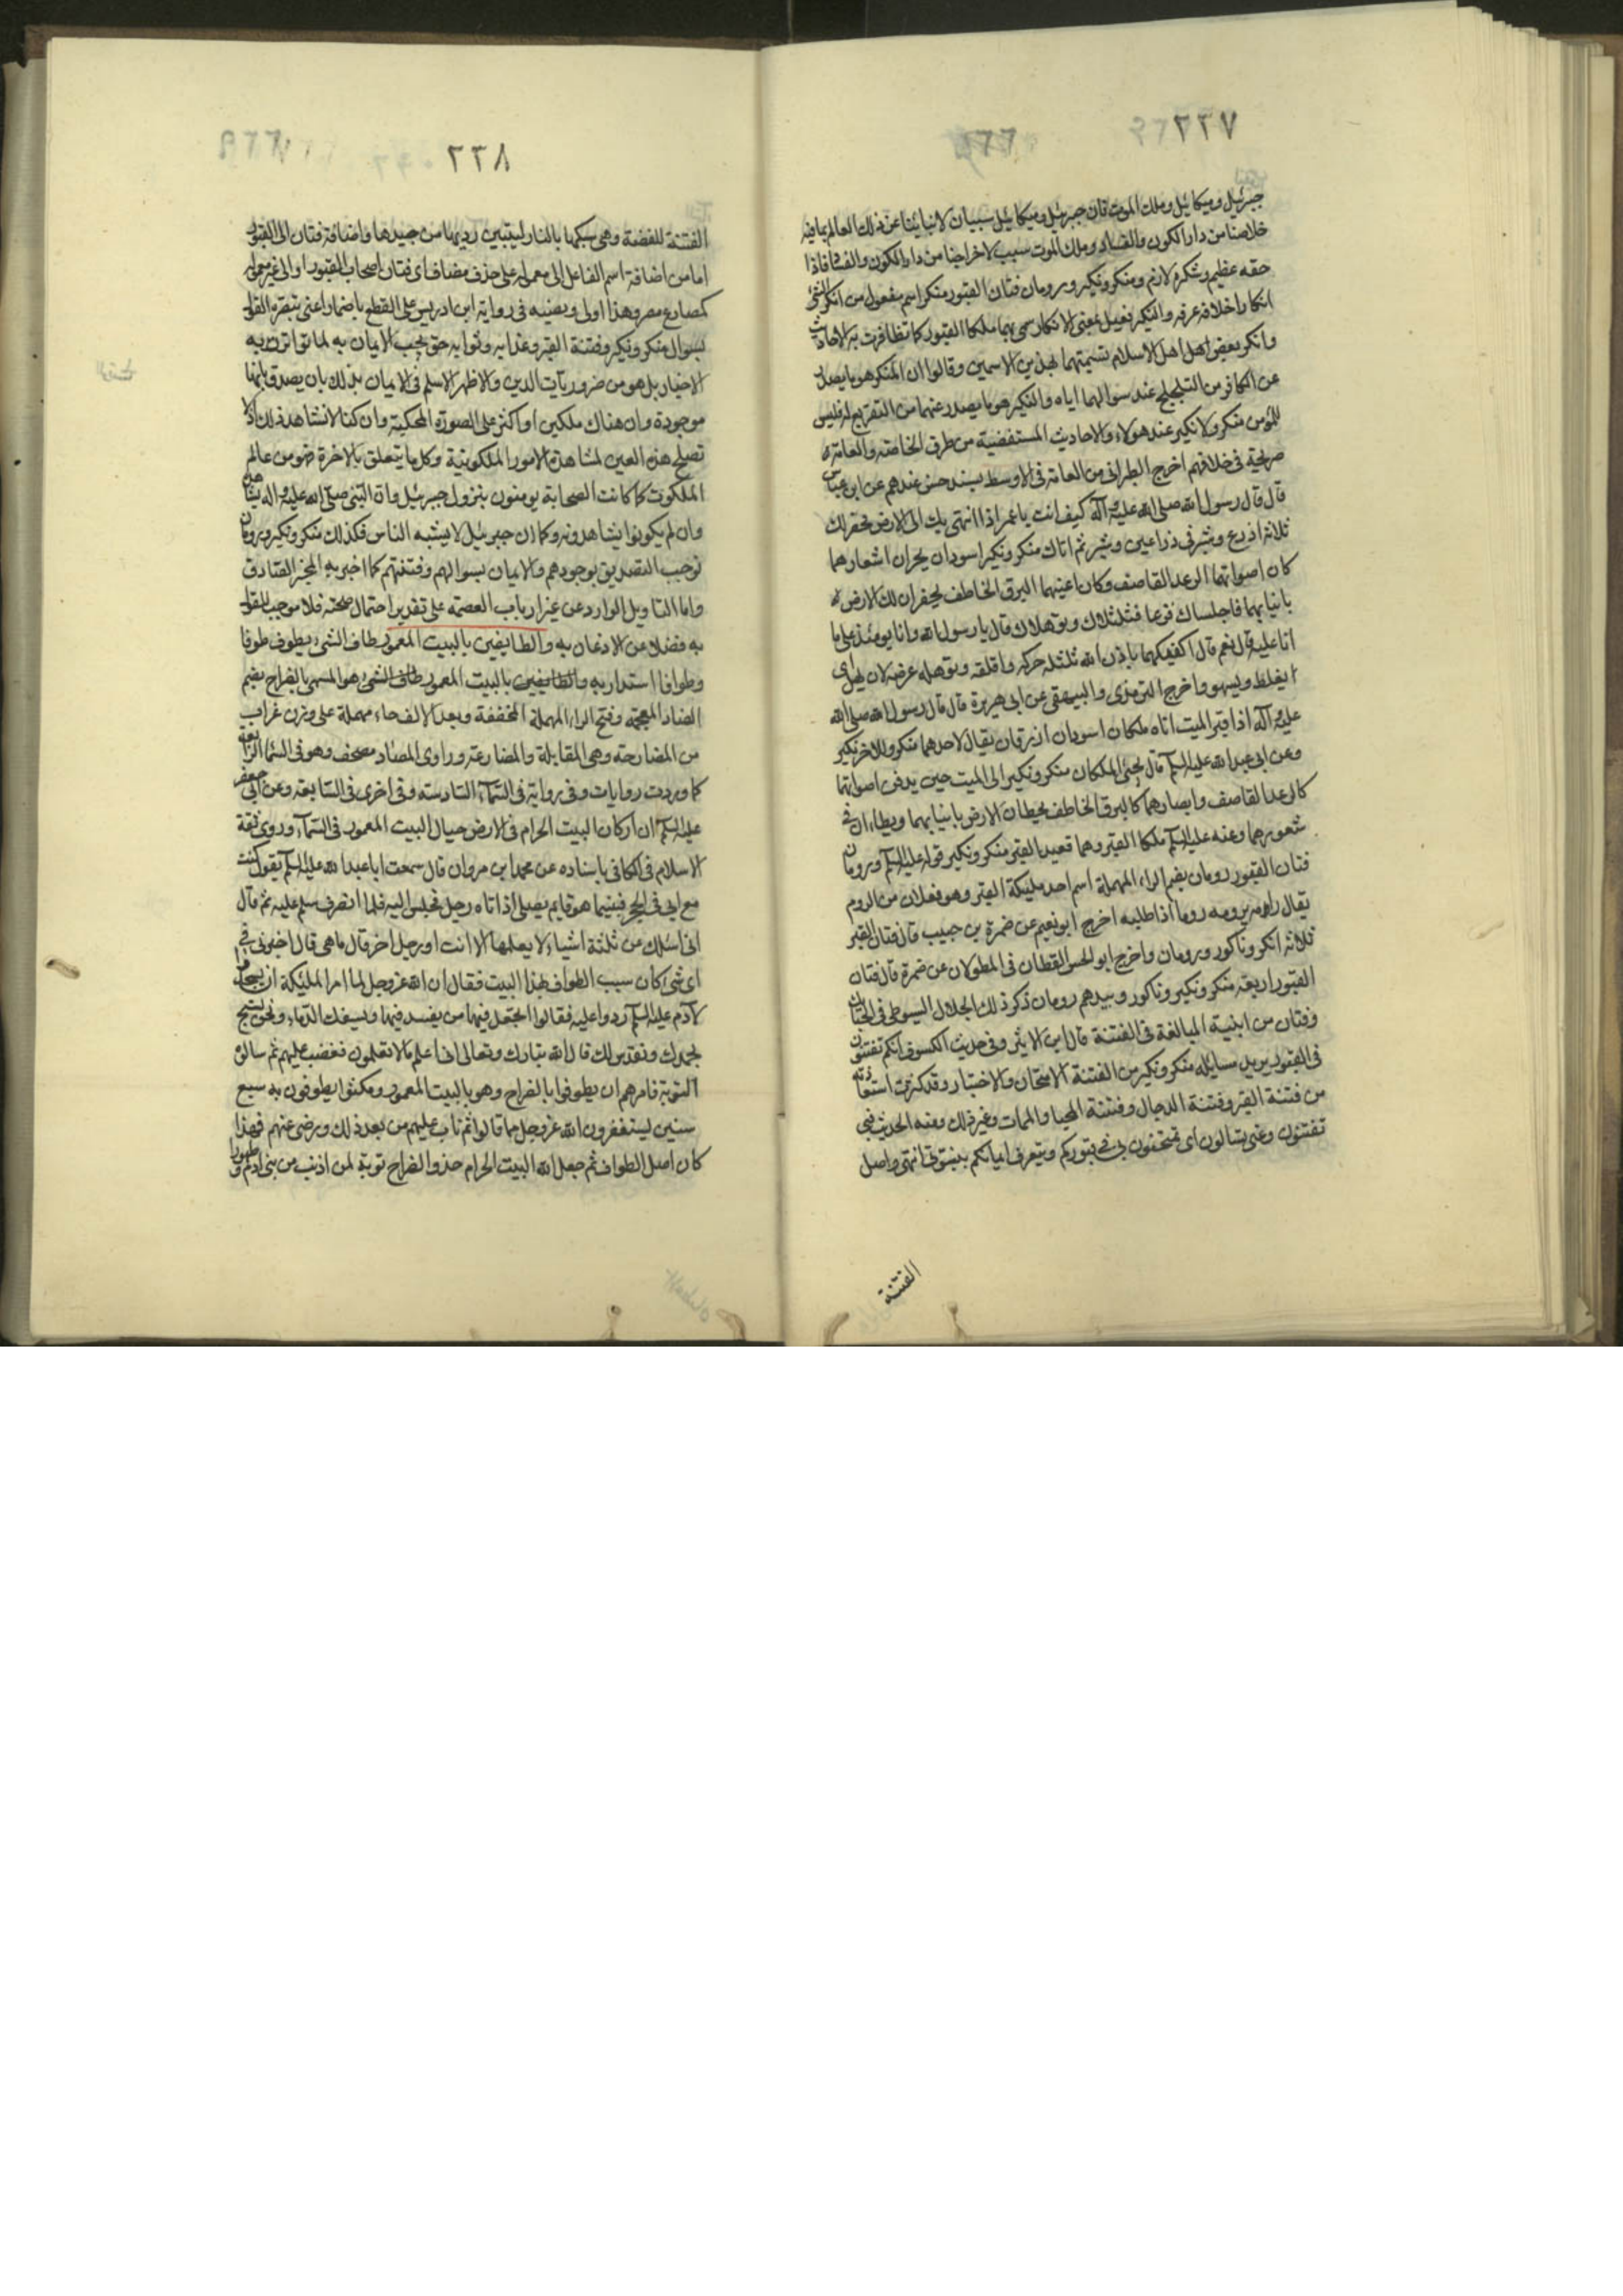 ٢٣٧
جبرئيل وميكائيل وملك الموت فان جبرئيل وميكائيل سببان لانبائنا عن ذلك العالم بما فيه
خلاصنا من دار الكون والفساد وملك الموت سبب لاخراجنا من دار الكون والفساد فاذا
حقه عظيم وشكره لازم ومنكر ونكير ورومان فتان القبور منكر اسم مفعول من انكر الشئ
انكارا خلاف عرفه والنكير فعيل بمعنى الانكار سمى بهما ملكا القبور كما تظافرت به الاحاديث
وانكر بعض اهل الاسلام تسميتهما بهذين الاسمين وقالوا ان المنكر هو ما يصدر
عن الكافر من التلجلج عند سوالهما اياه والنكير هو ما يصدر عنهما من التقريع له فليس
للمؤمن منكر ولا نكير عند هولاء والاحاديث المستفيضة من طرق الخاصة والعامة
صريحة فى خلافهم اخرج الطبرانى من العامة فى الاوسط بسند حسن عندهم عن ابن عباس
قال قال رسول الله صلى الله عليه وآله كيف انت يا عمر اذا انتهى بك الى الارض فحفر لك
ثلاثة اذرع وشبر فى ذراعين وشبر ثم اتاك منكر ونكير اسودان يجران اشعارهما
كان اصواتهما الرعد القاصف وكان اعينهما البرق الخاطف يحفران لك الارض
بانيابهما فاجلساك فزعا فتلتلاك وتوهلاك قال يا رسول الله وانا يومئذ على ما
انا عليه قال نعم قال اكفيكهما باذن الله تلتله حركه واقلقه وتوهله عرضه لان يهل اى
يغلط ويسهو واخرج الترمذى والبيهقى عن ابى هريرة قال قال رسول الله صلى الله
عليه وآله اذا قبر الميت اتاه ملكان اسودان ازرقان يقال لاحدهما منكر وللاخر نكير
وعن ابى عبد الله عليه السلم قال يجئ الملكان منكر ونكير الى الميت حين يدفن اصواتهما
كالرعد القاصف وابصارهما كالبرق الخاطف يخطان الارض بانيابهما ويطاءان فى
شعورهما وعنه عليه السلم ملكا القبر وهما قعيدا القبر منكر ونكير قوله عليه السلم ورومان
فتان القبور رومان بضم الراء المهملة اسم احد مليكة القبر وهو فعلان من الروم
يقال رامه يرومه روما اذا طلبه اخرج ابو نعيم عن ضمرة بن حبيب قال فتان القبر
ثلاثة انكر وناكور ورومان واخرج ابو الحسن القطان فى المطولات عن ضمرة قال فتان
القبور اربعة منكر ونكير وناكور وسيدهم رومان ذكر ذلك الجلال السيوطى فى
وفتان من ابنية المبالغة فى الفتنة قال ابن الاثير وفى حديث الكسوف انكم تفتنون
فى القبور يريد مسايلة منكر ونكير من الفتنة الامتحان والاختبار وقد كثرت استعاذته
من فتنة القبر وفتنة الدجال وفتنة المحيا والممات وغير ذلك ومنه الحديث فبى
تفتنون وعنى تسالون اى تمتحنون بى فى قبوركم ويتعرف ايمانكم بنبوتى انتهى واصل
الفتنة
٢٣٨
الفتنة للفضة وهى سبكها بالنار ليتبين رديها من جيدها واضافة فتان الى القبور
اما من اضافة اسم الفاعل الى معموله على حذف مضاف اى فتان اصحاب القبور او الى غير معموله
كمصارع مصر وهذا اولى ونصبه فى رواية ابن ادريس على القطع باضمار اعنى تبصرة القول
بسوال منكر ونكير وفتنة القبر وعذابه وثوابه حق يجب الايمان به لما تواترت به
الاخبار بل هو من ضروريات الدين والاظهر الاسلم فى الايمان بذلك بان يصدق بانها
موجودة وان هناك ملكين او اكثر على الصورة المحكية وان كنا لا نشاهد ذلك اذ لا
تصلح هذه العين لمشاهدة الامور الملكوتية وكل ما يتعلق بالاخرة فهو من عالم
الملكوت كما كانت الصحابة يومنون بنزول جبرئيل وان النبى صلى الله عليه وآله يشاهده
وان لم يكونوا يشاهدونه وكما ان جبرئيل لا يشبه الناس فكذلك منكر ونكير ورومان
فوجب التصديق بوجودهم والايمان بسوالهم وفتنتهم كما اخبر به المخبر الصادق
واما التاويل الوارد عن غير ارباب العصمة على تقدير احتمال صحته فلا موجب للقول
به فضلا عن الاذعان به والطايفين بالبيت المعمور طاف الشئ يطوف طوفا
وطوافا استدار به والطايفين بالبيت المعمور طاف الشئ هو المسمى بالضراح بضم
الضاد المعجمة وفتح الراء المهملة المخففة وبعد الالف حاء مهملة على وزن غراب
من المضارحة وهى المقابلة والمضارعة وراوى الصاد مصحف وهو فى السماء الرابعة
كما وردت روايات وفى رواية فى السماء السادسة وفى اخرى فى السابعة وعن ابى جعفر
عليه السلم ان اركان البيت الحرام فى الارض حيال البيت المعمور فى السماء وروى ثقة
الاسلام فى الكافى باسناده عن محمد ابن مروان قال سمعت ابا عبد الله عليه السلم يقول كنت
مع ابى فى الحجر فبينما هو قايم يصلى اذ اتاه رجل فجلس اليه فلما انصرف سلم عليه ثم قال
انى اسئلك عن ثلثة اشياء لا يعلمها الا انت او رجل اخر قال ما هى قال اخبرنى
اى شئ كان سبب الطواف بهذا البيت فقال ان الله عز وجل لما امر المليكة ان يسجدوا
لآدم عليه السلم ردوا عليه فقالوا اتجعل فيها من يفسد فيها ويسفك الدماء ونحن نسبح
بحمدك ونقدس لك قال الله تبارك وتعالى انى اعلم ما لا تعلمون فغضب عليهم ثم سالوه
التوبة فامرهم ان يطوفوا بالضراح وهو بالبيت المعمور ومكثوا يطوفون به سبع
سنين يستغفرون الله عز وجل مما قالوا ثم تاب عليهم من بعد ذلك ورضى عنهم فهذا
كان اصل الطواف ثم جعل الله البيت الحرام حذو الضراح توبة لمن اذنب من بنى آدم وطهورا